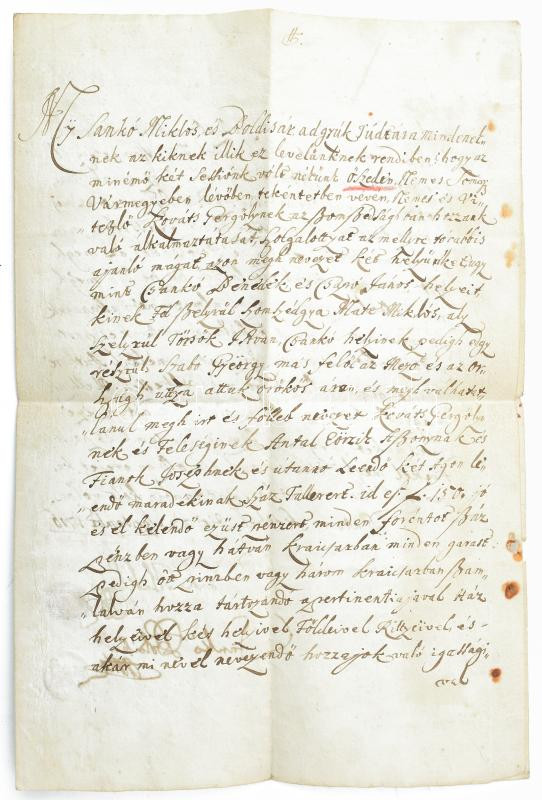 My Sankó Miklós, és Boldisár adgyúk Túdtára mindenek„
nek az kiknek illik ez levelünknek rendiben; hogy az
minémő két Sessionk vólt nékünk Őszeden, Nemes Tomay
Vármegyeben lévöben, tekéntetben vévén, Nemes és Vi„
tézlő Kováts Gergölynek az hozzánk
való alkalmaztatását, szolgalottyat, az mellyre továbbis
ajánló magát, azon megh nevezet két helyünket, ugy
mint Csanko Benedek és János helyeit,
kinek Fel Szélyrül Szomszédgya Mate Miklós, aly
Szélyrül Törsök Istvan, Csankó hélyinek pedigh egy
részrűl Szabó Győrgy, más felől az Mező és az Or„
szúgh uttya, attuk örökös áron, és megh válhatat„
„lanul megh irt és fölleb nevezet Kováts Gergöly„
nek és Feleséginek Antal Eörzik Aszonynak és
Fianok Josephnek és utánna Leendő két Agon lé„
endő maradékinak Száz Tallérért. id est f. 150. jó
és el kelendő ezüst pénzért minden forentot Száz
pénzben vagy hátvan kraicsárban minden garast
pedigh öt pinzben vagy három kraicsárban szám„
lalván hozza tártozandó apertinentiajaval Ház
helyeivel kés helyivel Földeivel Rétyeivel, és -
akár mi névél nevezendő hozzájok való igassági„
val